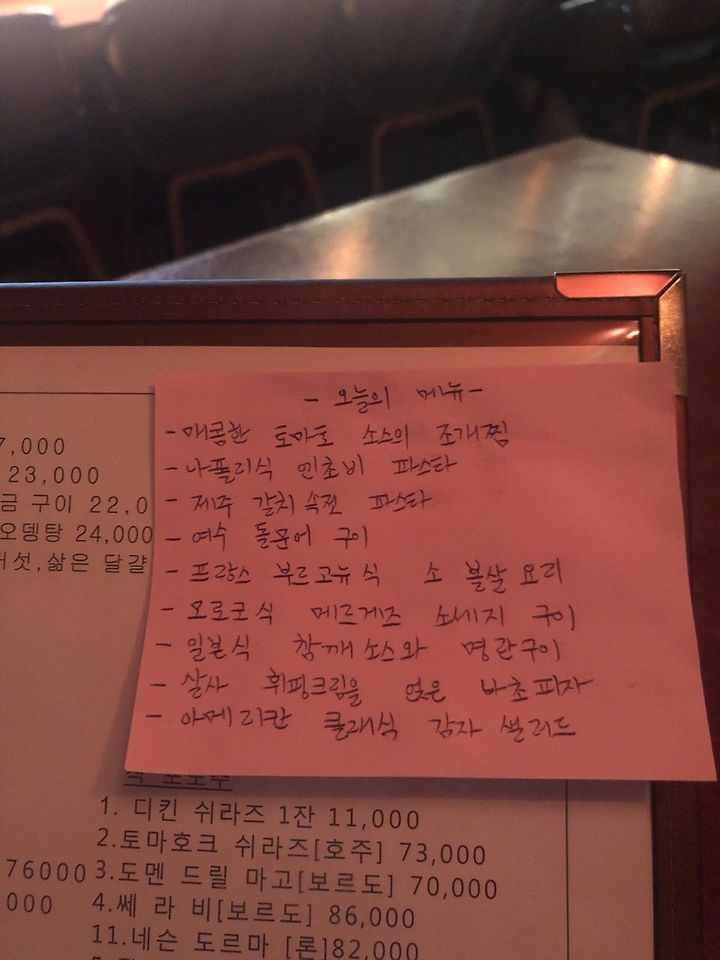 - 오늘의 메뉴-
- 매콤한 토마토 소스의 조개찜
- 나폴리식 엔초비 파스타
- 제주 갈치속젓 파스타
- 여수 돌문어 구이
- 프랑스 부르고뉴식 소 볼살 요리
- 모로코식 메르게즈 소세지 구이
- 일본식 참깨소스와 명란구이
- 살사 휘핑크림을 얹은 나초피자
- 아메리칸 클래식 감자 샐러드
7,000
23,000
구이 22,0
오뎅탕 24,000
삶은 달걀
1. 디킨 쉬라즈 1잔 11,000
2.토마호크 쉬라즈[호주] 73,000
76000 3.도멘 드릴 마고[보르도] 70,000
000 4.쎄 라 비[보르도] 86,000
11.네슨 도르마 [론]82,000